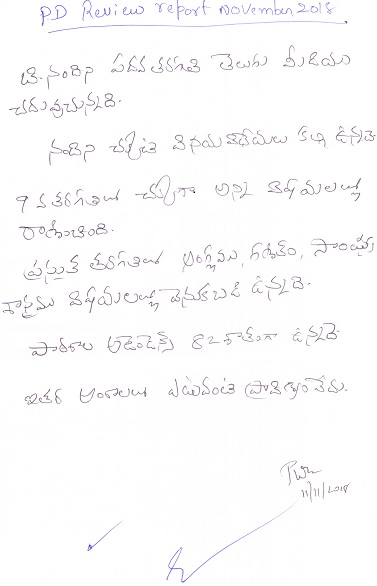 PD Review report November 2018.
చి. నందిని పదవ తరగతి తెలుగు మీడియం
చదువుచున్నది.
నందిని చక్కటి వినయ విధేయతలు కల్గి ఉన్నది
9 వ తరగతిలో చక్కగా అన్ని విషయాలలో
రాణించింది.
ప్రస్తుత తరగతిలో ఆంగ్లము, గణితం, సాంఘిక
శాస్త్రము విషయాలలో వెనుకబడి ఉన్నది.
పాఠశాల అటెండెన్స్ 82 శాతంగా ఉన్నది
ఇతర అంశాలలో ఎటువంటి ప్రావీణ్యం లేదు.
11/11/2018